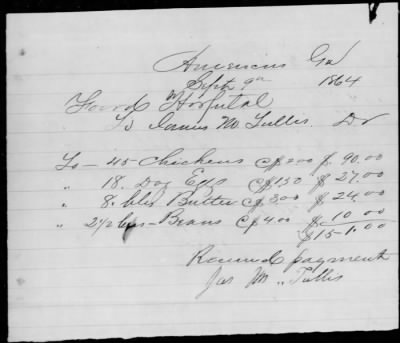 Americus Ga
Sept 9th 1864
Foard Hospital
To James M. Tullis Dr
To - 45 Chickens @ $2.00 $ 90.00
" 18. Doz Eggs @ $1.50 $ 27.00
" 8. lbs Butter @ $3.00 $ 24.00
" 2½ bus - Beans @ $4.00 $ 10.00
$151.00
Received payment
Jas M. Tullis